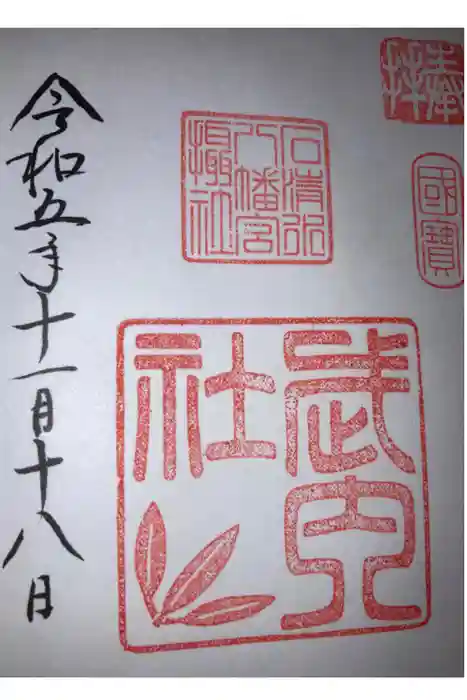 奉拝
國寶
石清水
八幡宮
摂社
武内
社
令和五年十一月十八日